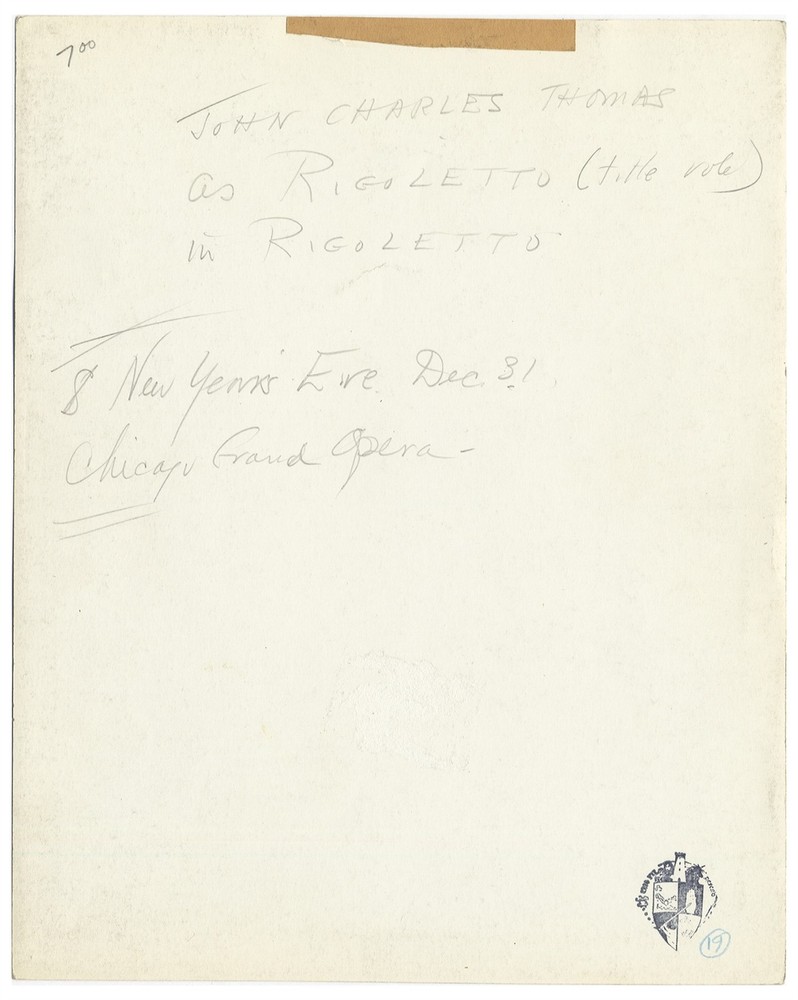 7 00
JOHN CHARLES THOMAS
as RIGOLETTO (title role)
in RIGOLETTO
8 New Year's Eve Dec. 31
Chicago Grand Opera -
19